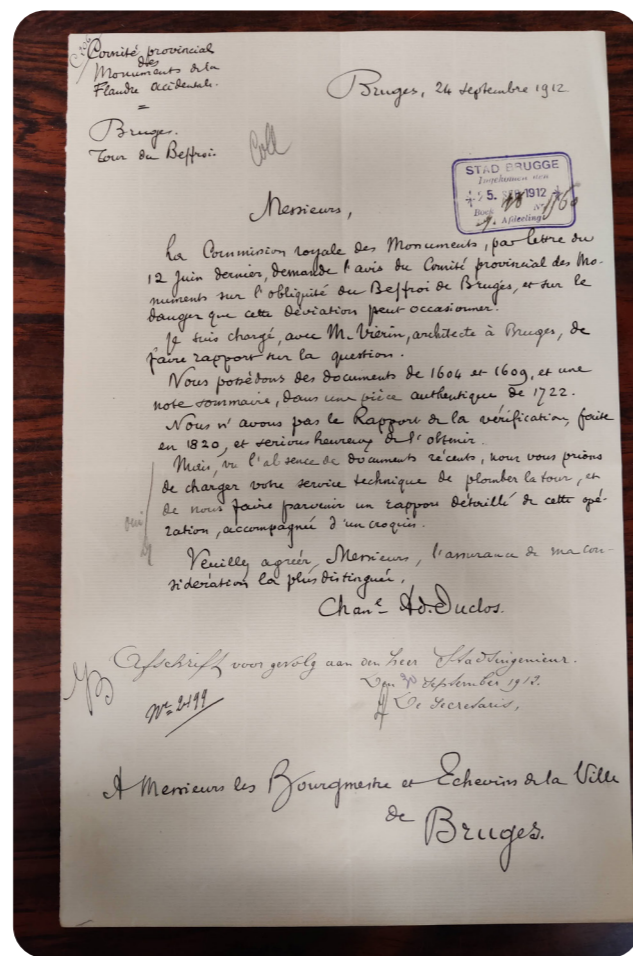 Comité provincial
des
Monuments de la
Flandre Occidentale.
=
Bruges.
Tour du Beffroi
Coll
Bruges, 24 septembre 1912
STAD BRUGGE
Ingekomen den
25. SEP 1912
Boek N°
Afdeeling
Messieurs,
La Commission royale des Monuments, par lettre du
12 Juin dernier, demande l'avis du Comité provincial des Mo-
numents sur l'obliquité du Beffroi de Bruges, et sur le
danger que cette déviation peut occasionner.
Je suis chargé, avec M. Viérin, architecte à Bruges, de
faire rapport sur la question.
Nous possédons des documents de 1604 et 1609, et une
note sommaire, dans une pièce authentique de 1722.
Nous n'avons pas le Rapport de la vérification, faite
en 1820, et serions heureux de l'obtenir.
Mais, vu l'absence de documents récents, nous vous prions
de charger votre service technique de plomber la tour, et
de nous faire parvenir un rapport détaillé de cette opé-
ration, accompagné d'un croquis.
oui
Veuillez agréer, Messieurs, l'assurance de ma con-
sidération la plus distinguée,
Chanᵉ Ad. Duclos.
Afschrift voor gevolg aan den heer Stadsingenieur.
Den 30 September 1912.
De Secretaris,
Nr 2499
A Messieurs les Bourgmestre et Echevins de la Ville
de
Bruges.